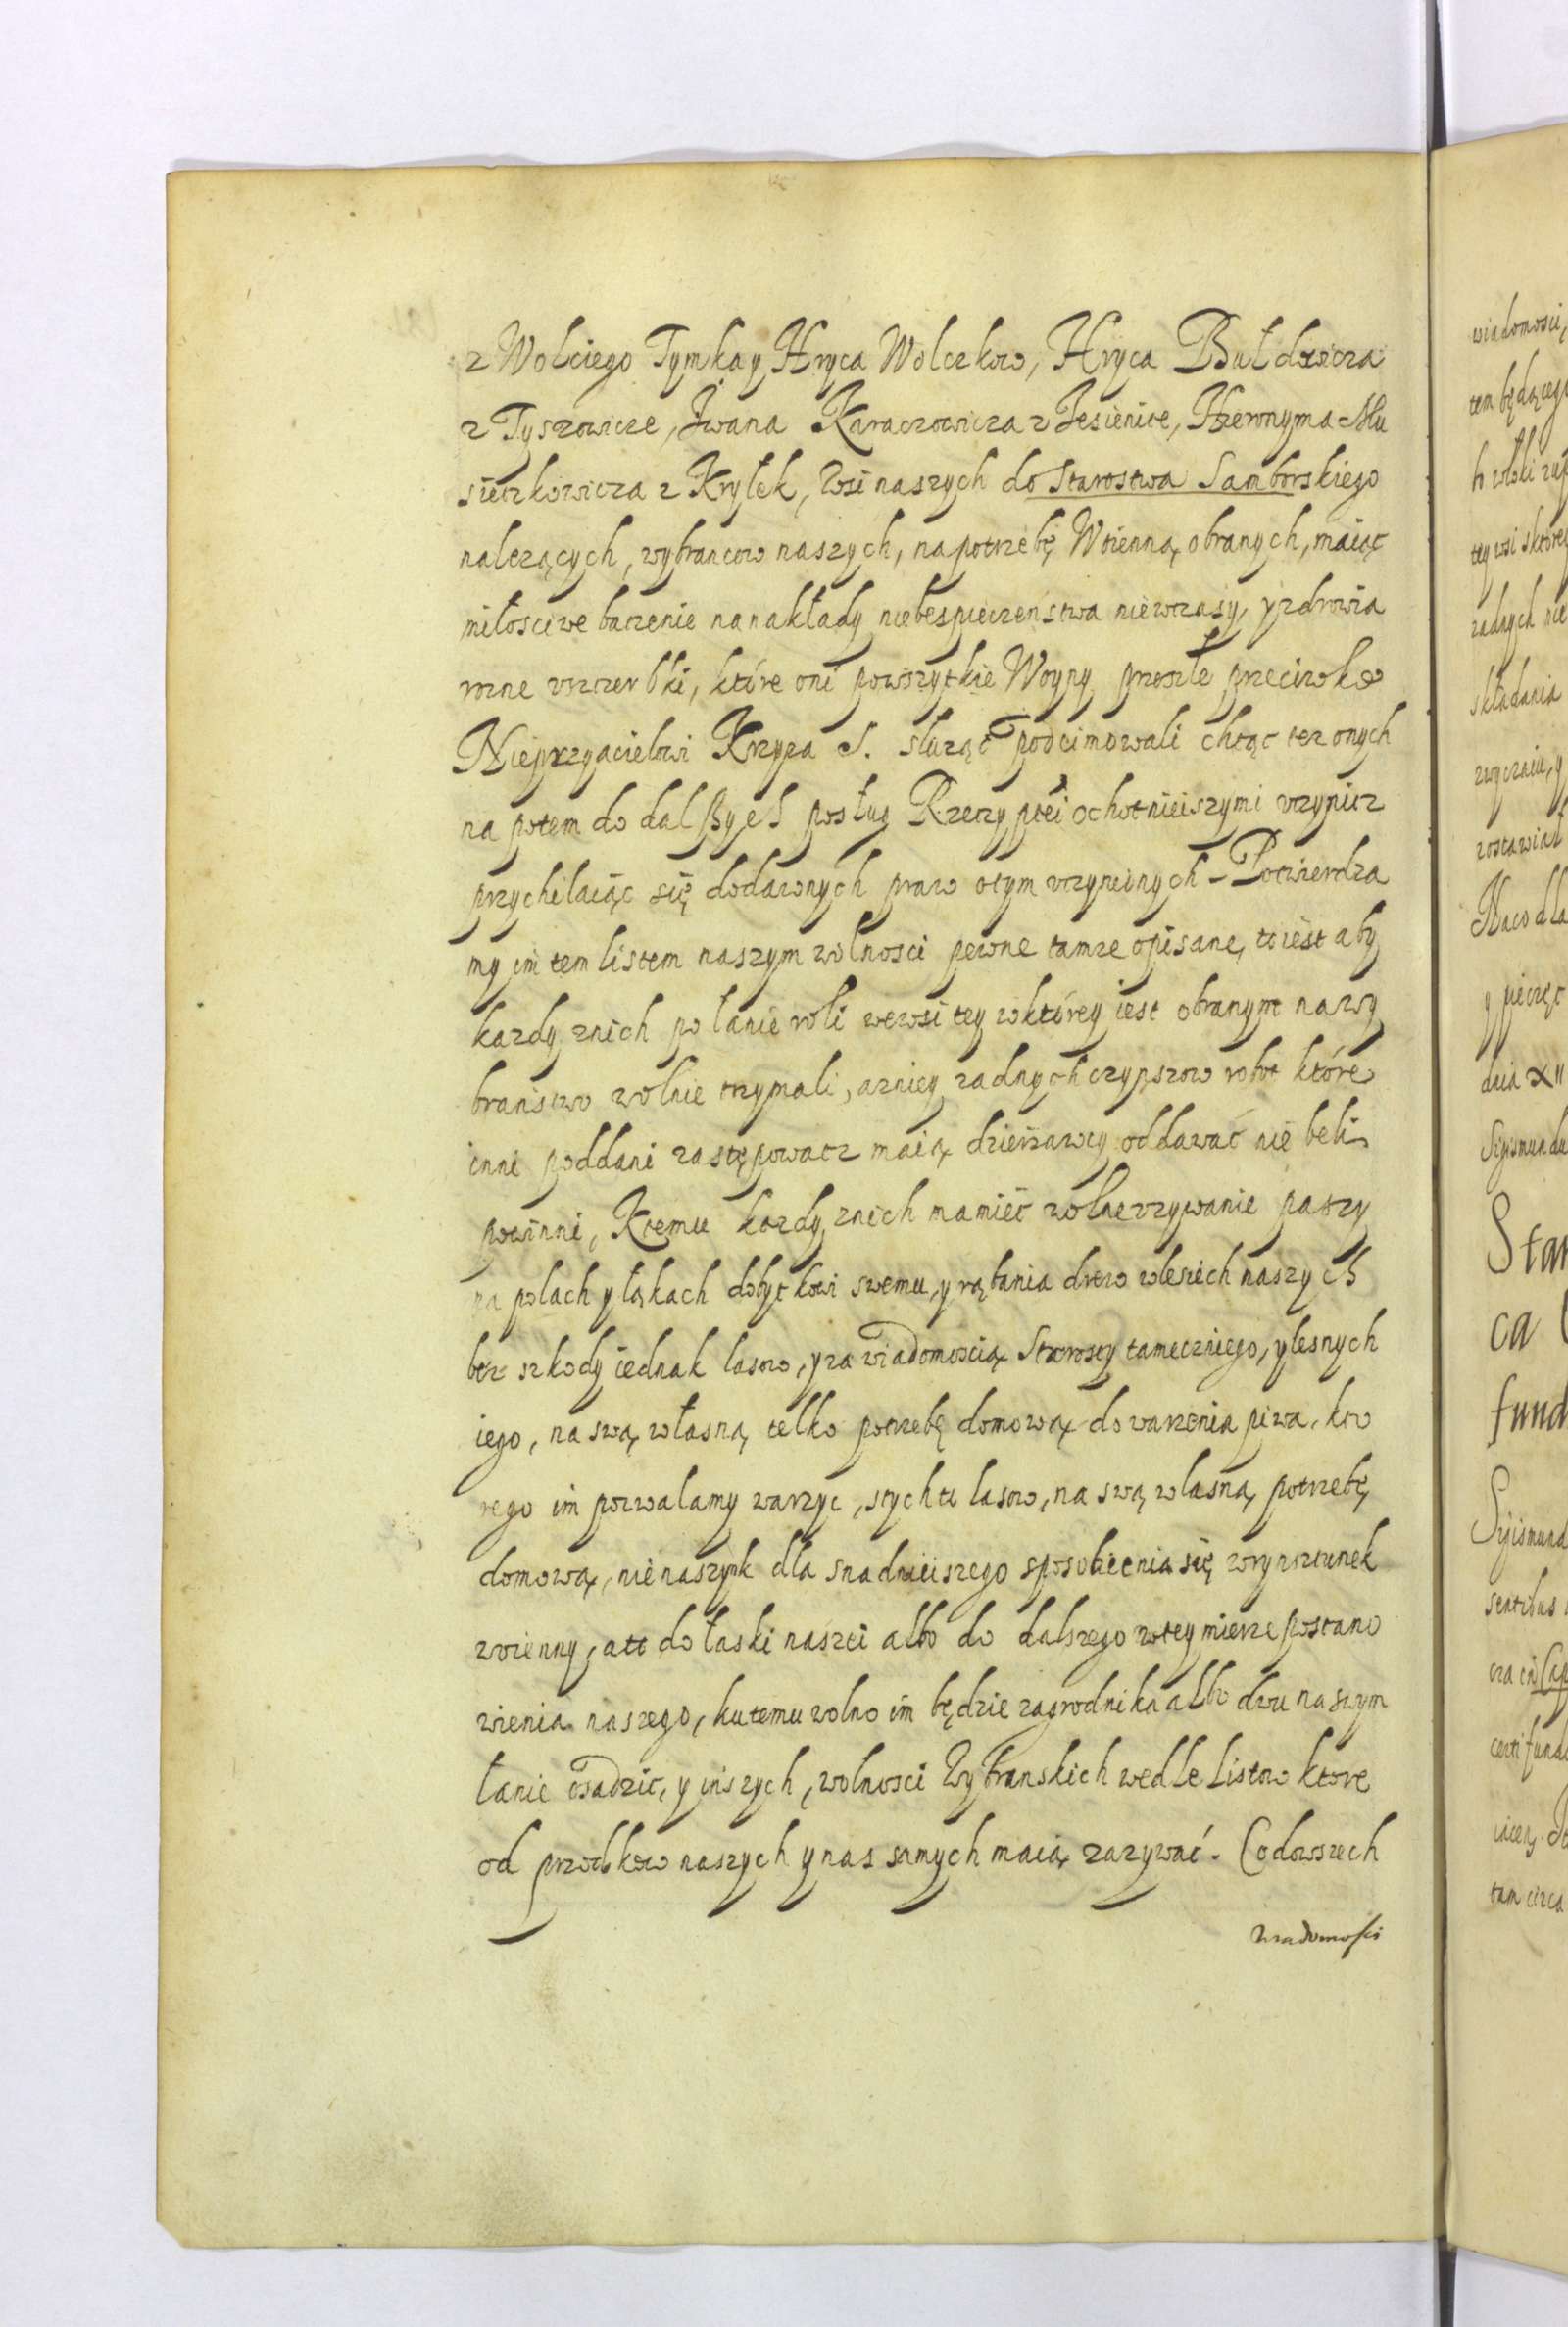 z Wolciego Tymka y Hryca Wolczkow, Hryca Buldowicza
z Tyszowicze, Iwana Karaczowicza z Jesienice, Hieronyma Mu
sieczkowicza z Krylek, Wsi naszych do Starostwa Samborskiego
nalezących, wybrancow naszych, na potrzebę Woienną obranych, maiąc
miłosciwe baczenie na nakłady niebespieczeństwa niewczasy, y zdrowia
rozne vszczerbki, które oni powszytkie Woyny przeszłe przeciwko
Nieprzyacielowi Krzyza S. sluząc podeimowali chcąc tez onych
na potem do dalßych posług Rzeczyptei ochotnieiszymi vczynicz
przychilaiąc się do dawnych praw otym vczynionych - Potwierdza
my im tem listem naszym wolnosci pewne tamze opisane, to iest aby
kazdy znich po łanie roli wewsi tey wktórey iest obranym na wy
branstwo wolnie trzymali, a zniey zadnych czynszow robot które
inni poddani zastępowacz maią dzierzawcy oddawać nie beli
powinni, Ktemu kazdy znich ma mieć wolne vzywanie paszy
na polach y łąkach dobytkowi swemu, y rąbania drew wlesiech naszych
bez szkody iednak lasow, y za wiadomoscią Starosty tamecznego, y lesnych
iego, na swą własną telko potrzebę domową do warzenia piwa, kto
rego im pozwalamy warzyc, stychto lasow, na swą własną potrzebę
domową, nie naszynk dla snadnieiszego sposobienia się wrynsztunek
woienny, a to do łaski naszei albo do dalszego wtey mierze postano
wienia naszego, ku temu wolno im będzie zagrodnika albo dwu na swym
łanie osadzic, y inszych, wolnosci Wybranskich wedle Listow które
od przodkow naszych y nas samych maią zazywać. Co dowszech
wiadomosci
wiadomosci,
tem będącego
tey wsi sktórey
zadnych nie
składania
zwyczaiu, y
zostawiał
Na co dla
y pieczęć
dnia XII
Sigismundu
Star
ca
fund
Sigismund
certi fund
tam circa